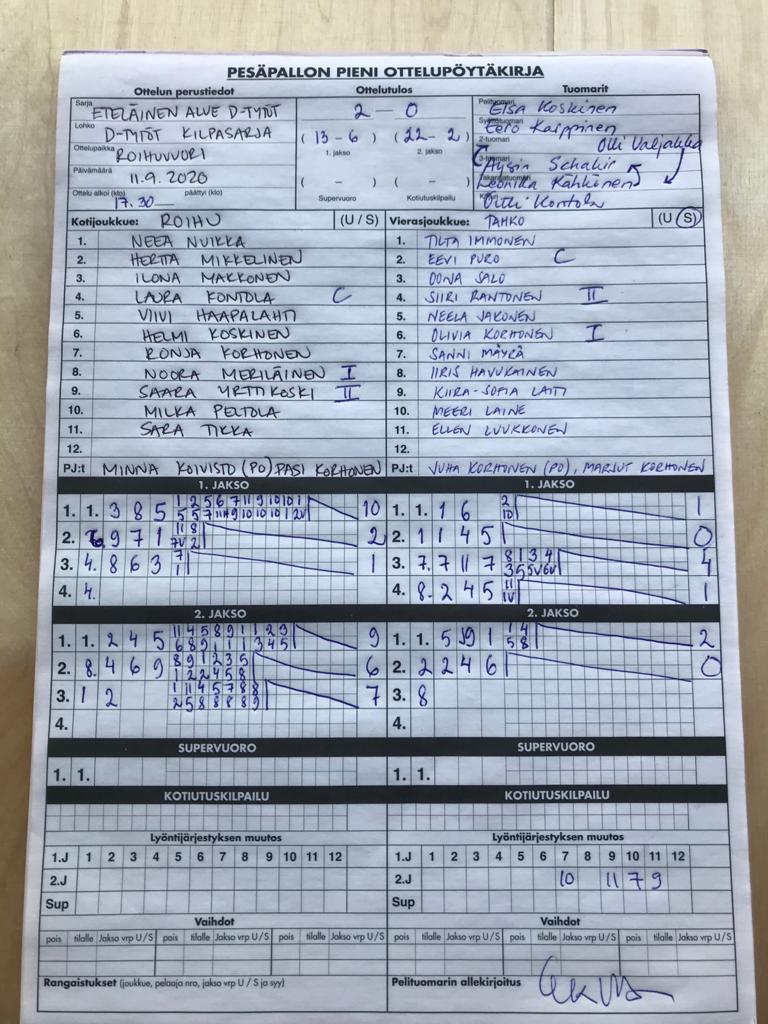 PESÄPALLON PIENI OTTELUPÖYTÄKIRJA
Ottelun perustiedot Ottelutulos Tuomarit
Sarja ETELÄINEN ALUE D-TYTÖT
Lohko D-TYTÖT KILPASARJA
Ottelupaikka ROIHUVUORI
Päivämäärä 11.9.2020
Ottelu alkoi (klo) päättyi (klo)
17.30
2 – 0
(13-6) (22-2)
1. jakso 2. jakso
( – ) ( – )
Supervuoro Kotiutuskilpailu
Pelituomari Elsa Koskinen
Eero Karppinen
2-tuomari Olli Valjakka
Schakir
Kähkönen
Kontola
Kotijoukkue: ROIHU (U / S)
1. NEEA NUIKKA
2. HERTTA MIKKELINEN
3. ILONA MAKKONEN
4. LAURA KONTOLA C
5. VIIVI HAAPALAHTI
6. HELMI KOSKINEN
7. RONJA KORHONEN
8. NOORA MERILÄINEN I
9. SAARA YRTTIKOSKI II
10. MILKA PELTOLA
11. SARA TIKKA
12.
PJ:t MINNA KOIVISTO (PO) PASI KORHONEN
Vierasjoukkue: TAHKO (U / S)
1. TILTA IMMONEN
2. EEVI PURO C
3. OONA SALO
4. SIIRI RANTONEN II
5. NEELA JAKONEN
6. OLIVIA KORHONEN I
7. SANNI MÄYRÄ
8. IIRIS HAVUKAINEN
9. KIIRA-SOFIA LAITI
10. MEERI LAINE
11. ELLEN LUUKKONEN
12.
PJ:t JUHA KORHONEN (PO), MARJUT KORHONEN
1. JAKSO 1. JAKSO
1. 1. 3 8 5 10
2. 9 7 1 2
3. 4. 8 6 3 1
4. 4.
1. 1. 1 6 1
2. 1 1 4 5 0
3. 7. 7 11 7 4
4. 8. 2 4 5 1
2. JAKSO 2. JAKSO
1. 1. 2 4 5 9
2. 8. 4 6 9 6
3. 1 2 7
4.
1. 1. 5 9 1 2
2. 2 2 4 6 0
3. 8
4.
SUPERVUORO SUPERVUORO
1. 1. 1. 1.
KOTIUTUSKILPAILU KOTIUTUSKILPAILU
Lyöntijärjestyksen muutos Lyöntijärjestyksen muutos
1.J 1 2 3 4 5 6 7 8 9 10 11 12
2.J
Sup
1.J 1 2 3 4 5 6 7 8 9 10 11 12
2.J 10 11 7 9
Sup
Vaihdot Vaihdot
pois tilalle Jakso vrp U/S pois tilalle Jakso vrp U/S pois tilalle Jakso vrp U/S
pois tilalle Jakso vrp U/S pois tilalle Jakso vrp U/S pois tilalle Jakso vrp U/S
Rangaistukset (joukkue, pelaaja nro, jakso vrp U / S ja syy)
Pelituomarin allekirjoitus